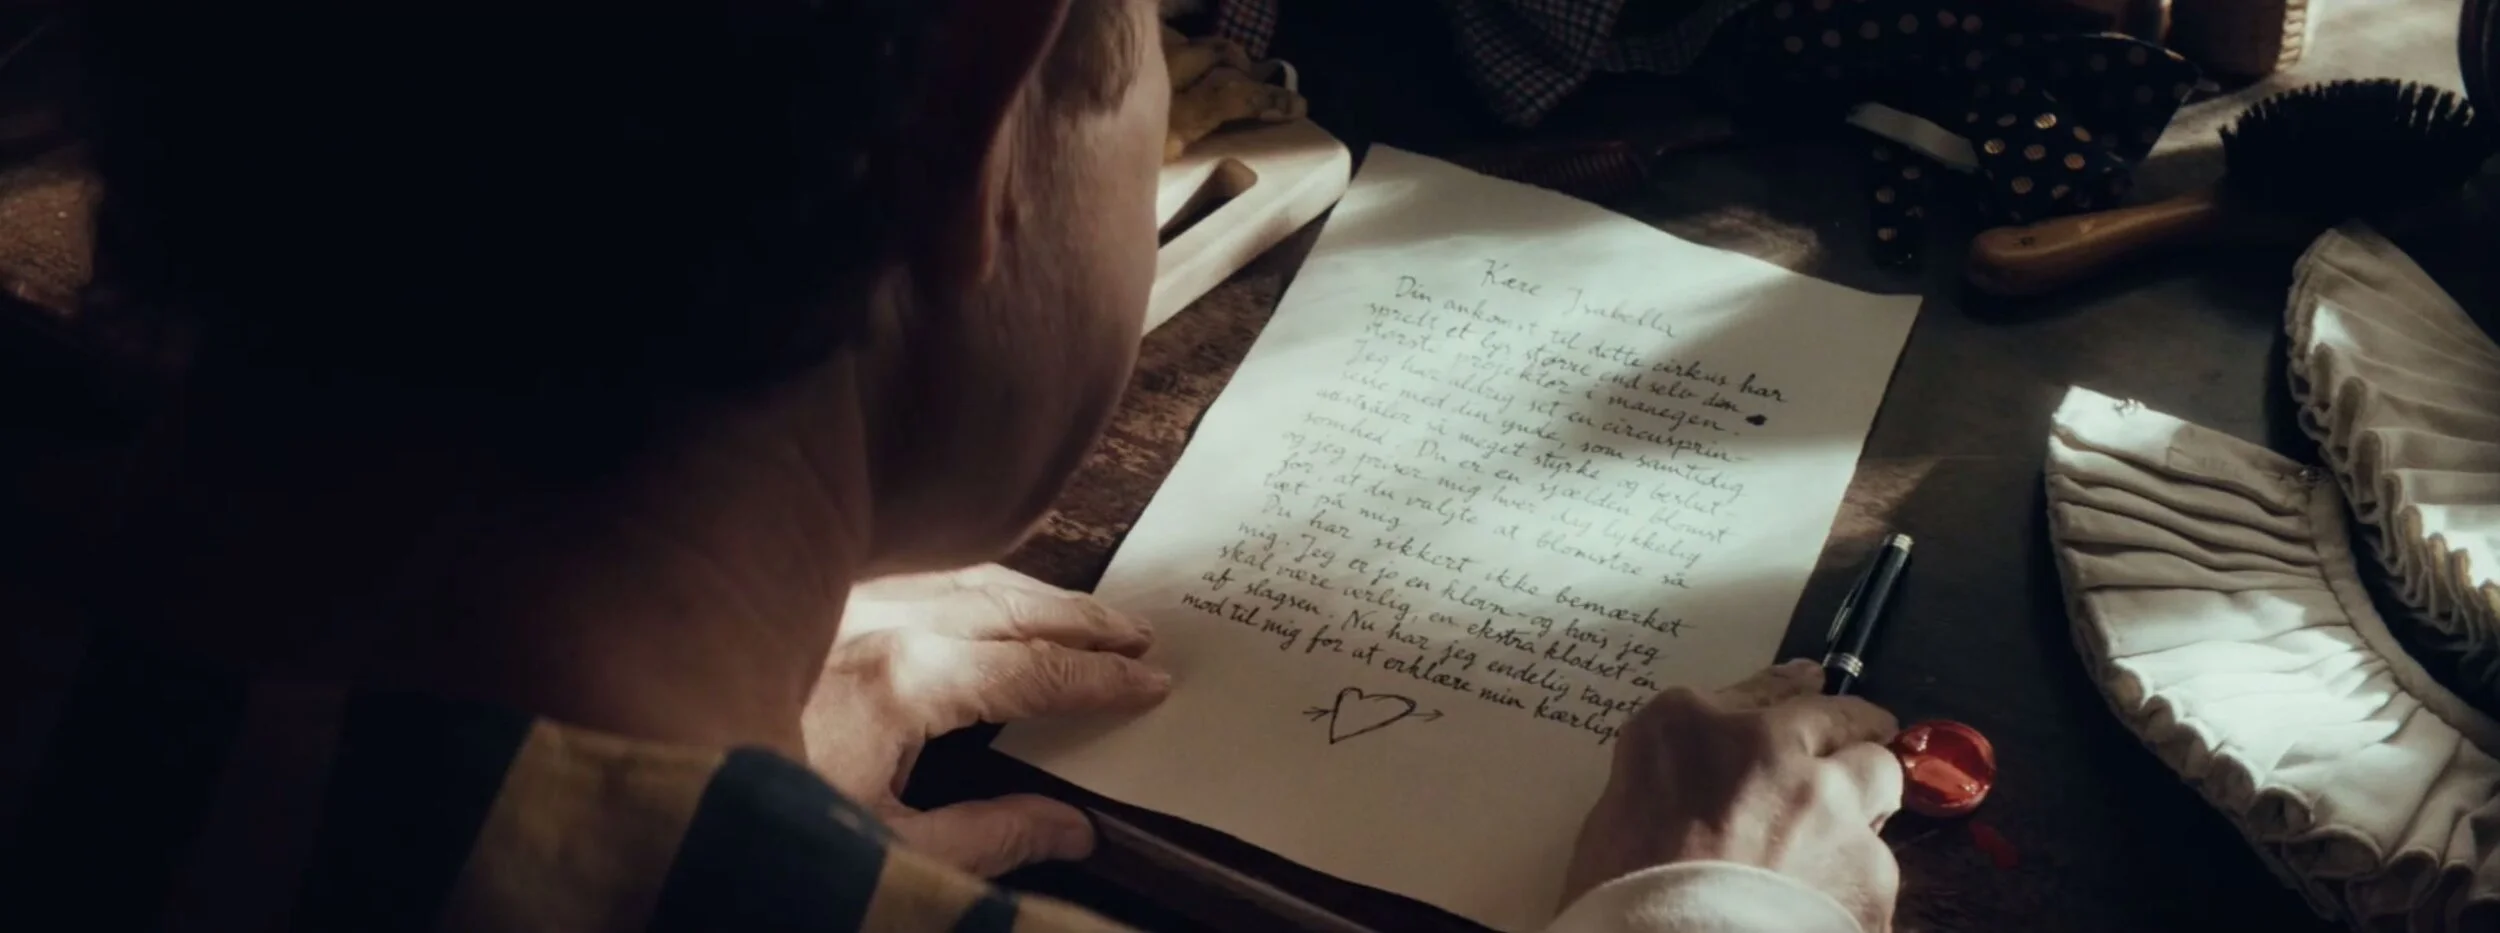 Kære Isabella
Din ankomst til dette cirkus har
spredt et lys større end selv den
største projektør i manegen.
Jeg har aldrig set en circusprin-
sesse med din ynde, som samtidig
udstråler så meget styrke og beslut-
somhed. Du er en sjælden blomst
og jeg priser mig hver dag lykkelig
for, at du valgte at blomstre så
tæt på mig.
Du har sikkert ikke bemærket
mig. Jeg er jo en klovn - og hvis jeg
skal være ærlig, en ekstra klodset én
af slagsen. Nu har jeg endelig taget
mod til mig for at erklære min kærlig